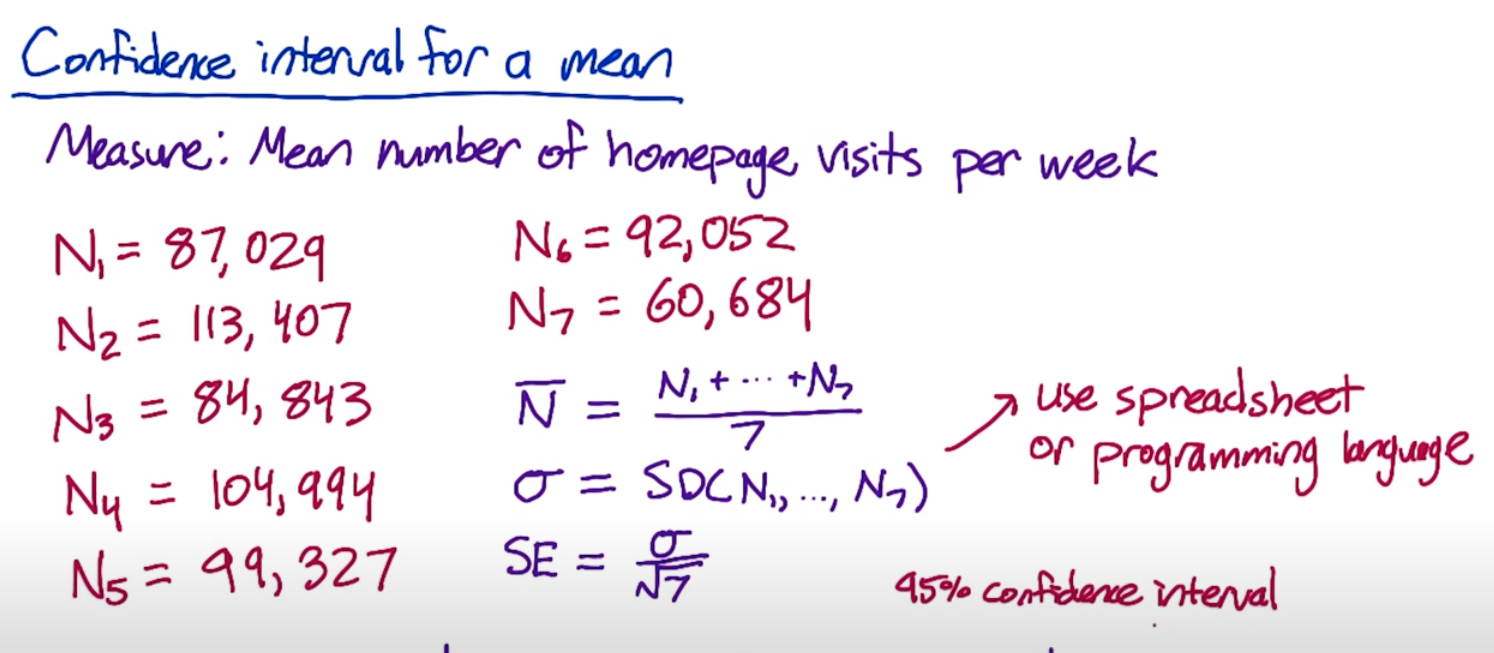 Confidence interval for a mean
Measure: Mean number of homepage visits per week
N₁ = 87,029
N₂ = 113,407
N₃ = 84,843
N₄ = 104,994
N₅ = 99,327
N₆ = 92,052
N₇ = 60,684
N̅ = (N₁ + ··· + N₇) / 7
σ = SD(N₁, ..., N₇)
SE = σ/√7
→ use spreadsheet
or programming language
95% confidence interval